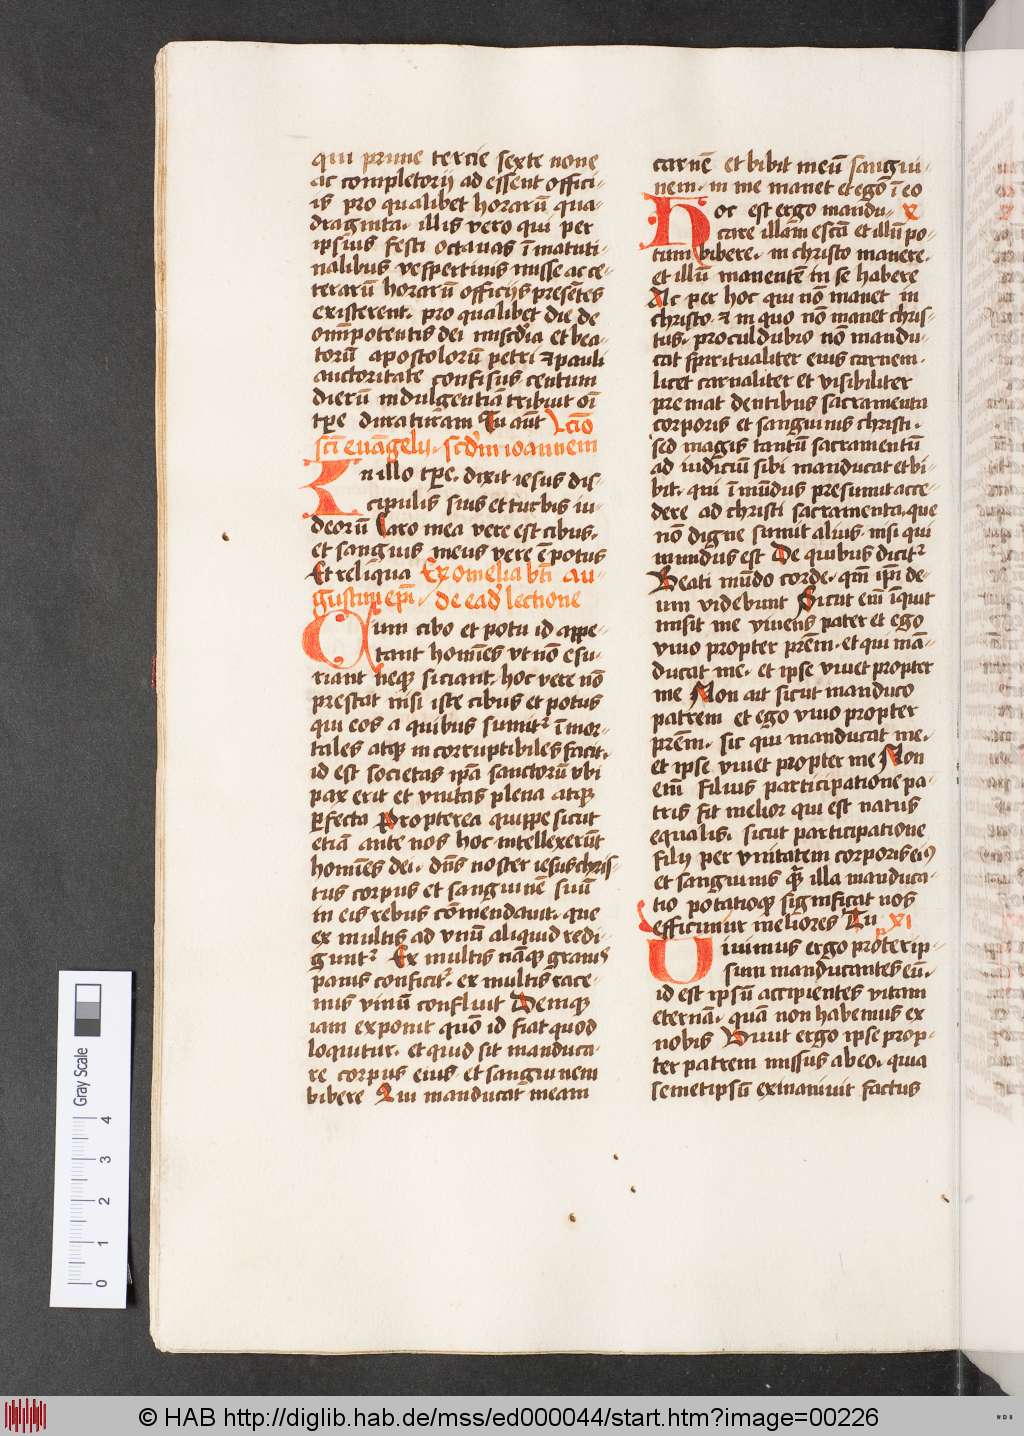 qui prime tercie sexte none
ac completorij ad essent offici-
is pro qualibet horarū qua-
draginta. illis vero qui per
ipsius festi octauas ī matuti-
nalibus vespertinis misse ac ce-
terarū horarū officijs presētes
existerent. pro qualibet die de
omīpotentis dei miscd'ia et bea-
torū apostolorū petri et pauli
auctoritate confisus centum
dierū indulgentiā tribuit oī
tpe duraturam Tu aūt Lctio
scī euāgelij. scd'm ioannem
In illo tpe. dixit iesus dis-
cipulis suis et turbis iu-
deorū Caro mea vere est cibus.
et sanguis meus vere ē potus
Et reliqua Ex omelia bti au-
gustini epi. de ead lectione
Cum cibo et potu id appe-
tant homīes vt nō esu-
riant neqz siciant. hoc vere nō
prestat nisi iste cibus et potus
qui eos a quibus sumit² īmor-
tales atqz incorruptibiles facit.
id est societas ip̄a sanctorū vbi
pax erit et vnitas plena atqz
pfecta Propterea quippe sicut
etiā ante nos hoc intellexerūt
homīes dei. dn̄s noster iesus chris-
tus corpus et sanguinē suū
in eis rebus cōmendauit. que
ex multis ad vnū aliquid redi-
gunt² Ex multis nāqz granis
panis conficit². ex multis race-
mis vinū confluit Deniqz
iam exponit quō id fiat quod
loquitur. et quid sit manduca-
re corpus eius et sanguinem
bibere Qui manducat meam
carnē et bibit meū sangui-
nem. in me manet et egō ī eo
Hoc est ergo mandu- x
care illam escā et illū po-
tum bibere. in christo manere.
et illū manentē in se habere
Ac per hoc qui nō manet in
christo. et in quo nō manet chris-
tus. proculdubio nō mandu-
cat spiritualiter eius carnem.
licet carnaliter et visibiliter
premat dentibus sacramenta
corporis et sanguinis christi.
sed magis tantū sacramentū
ad iudiciū sibi manducat et bi-
bit. qui īmūdus presumit acce-
dere ad christi sacramenta. que
nō digne sumit alius. nisi qui
mundus est De quibus dicit²
Beati mūdo corde. qm̄ ip̄i de-
um videbunt Sicut eni īquit
misit me viuens pater et ego
viuo propter prēm. et qui mā-
ducat me. et ipse viuet propter
me Non ait sicut manduco
patrem et ego viuo propter
prēm. sic qui manducat me.
et ipse viuet propter me Non
em̄ filius participatione pa-
tris fit melior qui est natus
equalis. sicut participatione
filij per vnitatem corporis ei9
et sanguinis qz illa manduca-
tio potatioqz significat nos
efficimur meliores Tu xi
Viuimus ergo propter ip-
sum manducantes eū.
id est ipsū accipientes vitam
eternā. quā non habemus ex
nobis Viuit ergo ipse prop-
ter patrem missus ab eo. quia
semetipsū exinaniuit factus
Gray Scale
0 1 2 3 4
© HAB http://diglib.hab.de/mss/ed000044/start.htm?image=00226